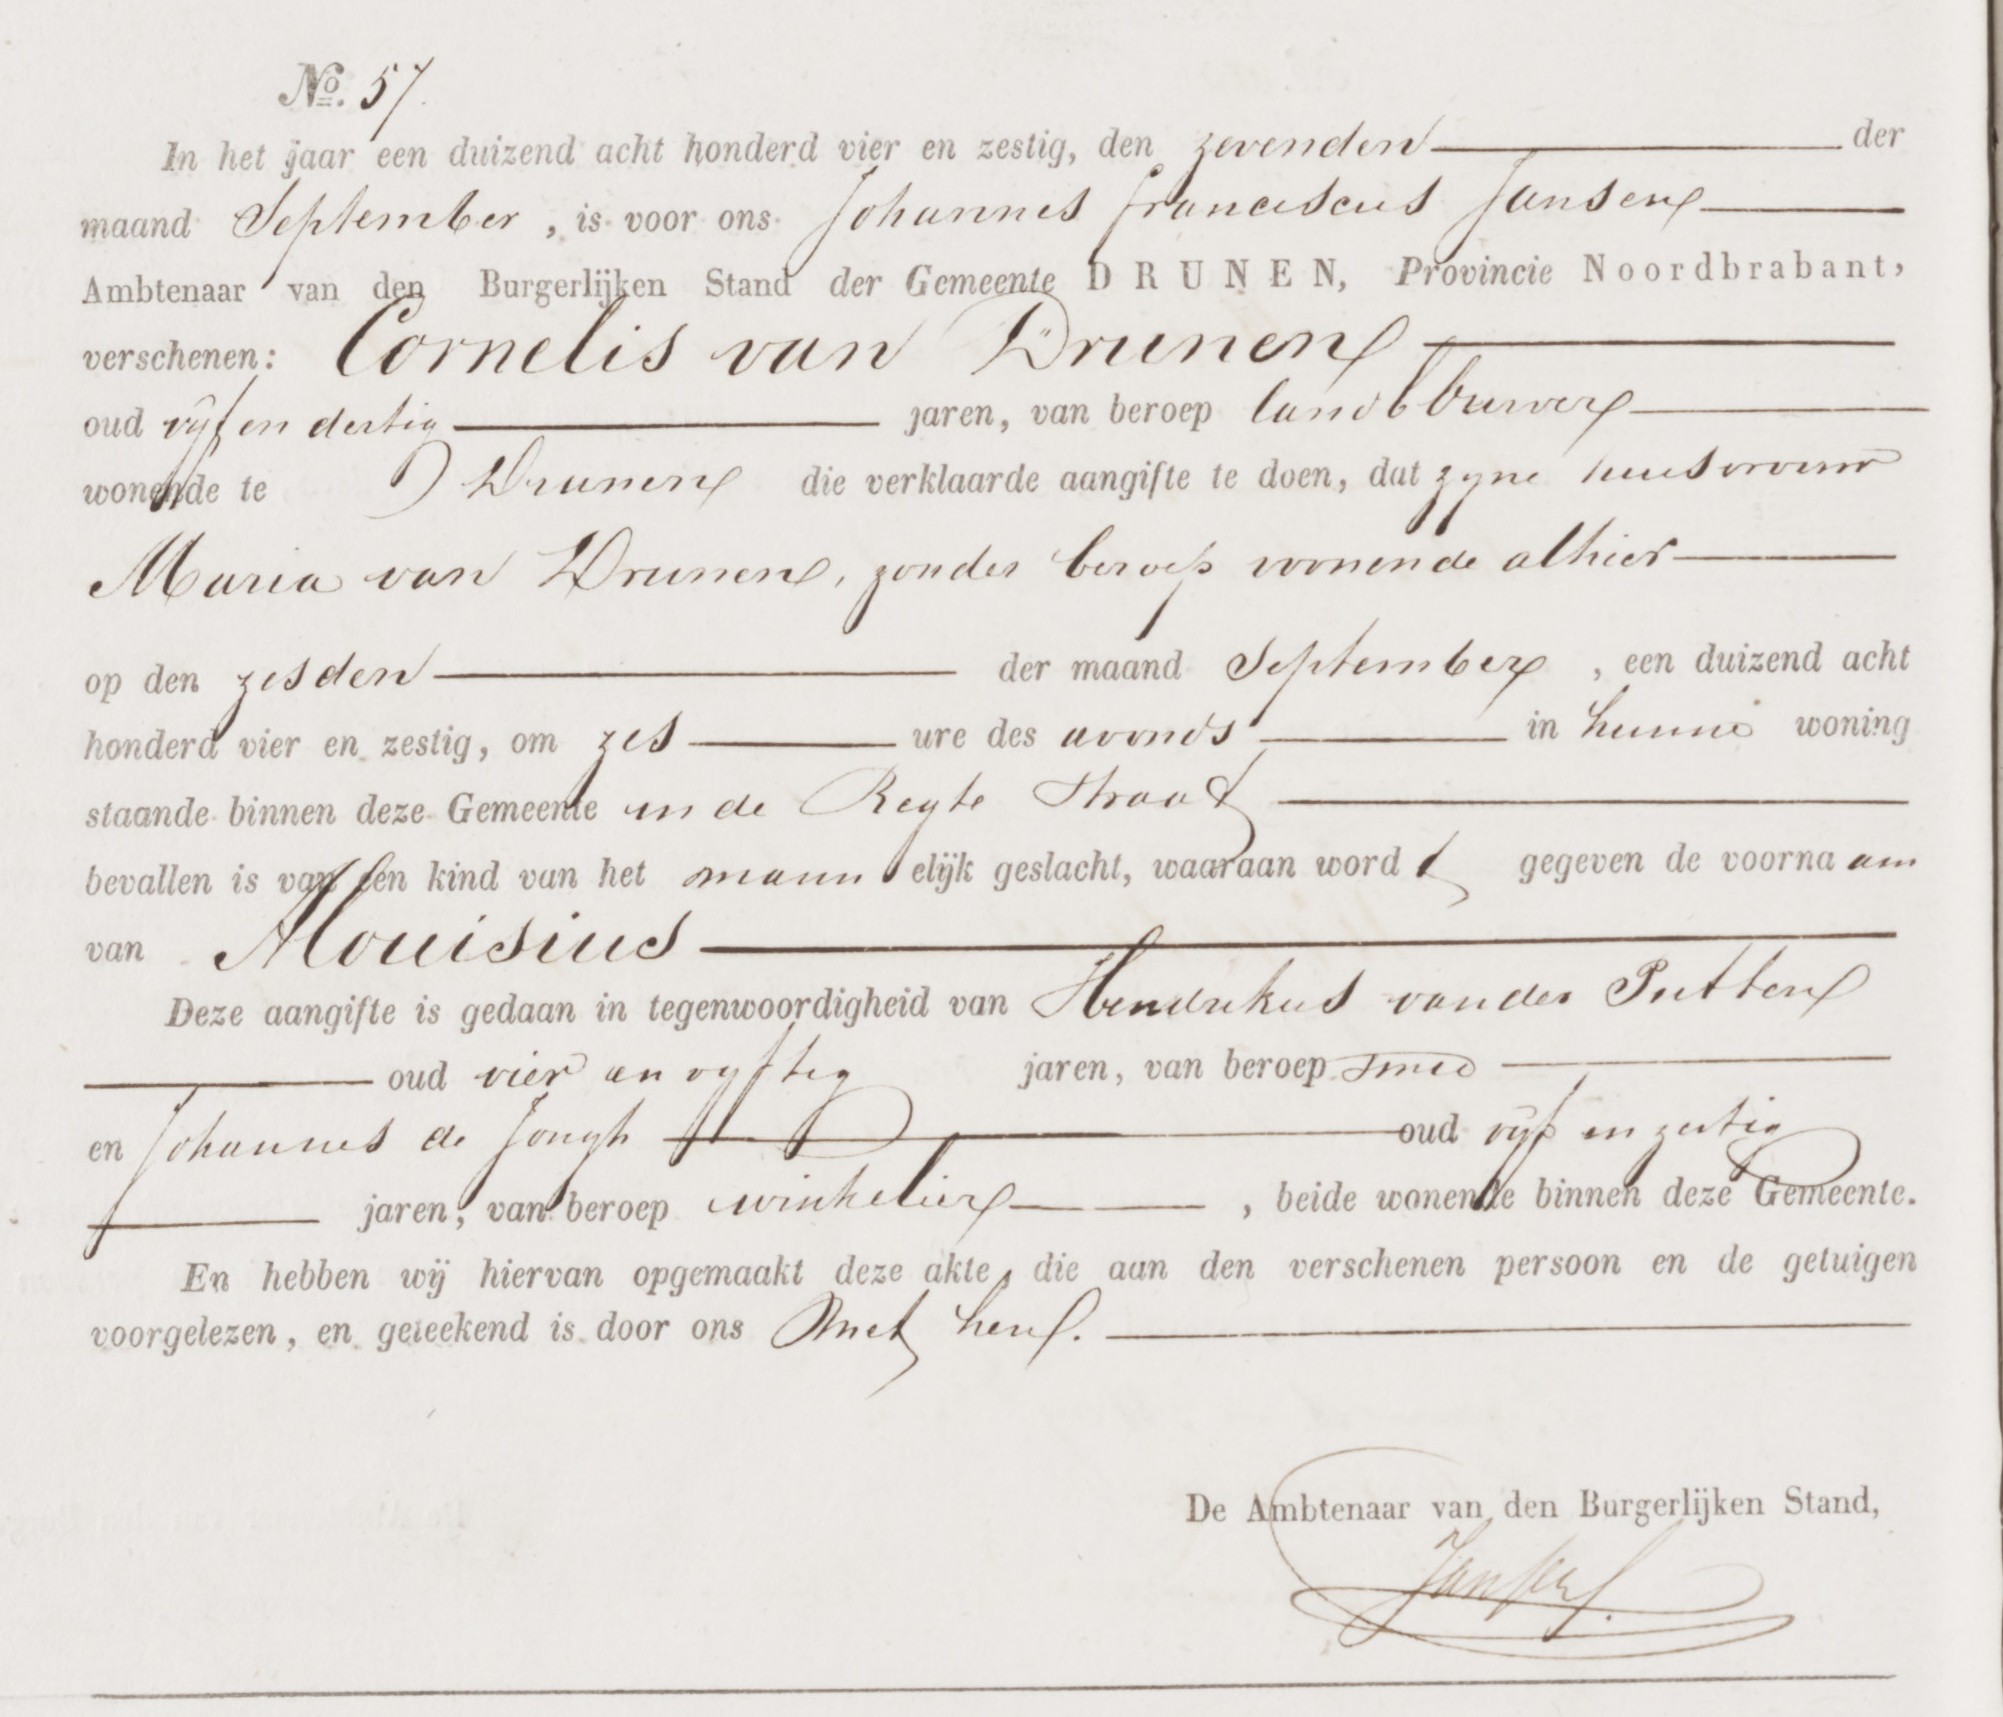 No. 57.
In het jaar een duizend acht honderd vier en zestig, den zevenden der
maand September, is voor ons Johannes Franciscus Jansen
Ambtenaar van den Burgerlijken Stand der Gemeente DRUNEN, Provincie Noordbrabant,
verschenen: Cornelis van Drunen
oud vyf en dertig jaren, van beroep landbouwer
wonende te Drunen die verklaarde aangifte te doen, dat zyne huisvrouw
Maria van Drunen, zonder beroep wonende alhier
op den zesden der maand September, een duizend acht
honderd vier en zestig, om zes ure des avonds in hunne woning
staande binnen deze Gemeente in de Regte Straat
bevallen is van een kind van het mannelijk geslacht, waaraan wordt gegeven de voornaam
van Alouisius
Deze aangifte is gedaan in tegenwoordigheid van Hendrikus van der Putten
oud vier en vyftig jaren, van beroep smid
en Johannes de Jongh oud vyf en zestig
jaren, van beroep winkelier, beide wonende binnen deze Gemeente.
En hebben wij hiervan opgemaakt deze akte, die aan den verschenen persoon en de getuigen
voorgelezen, en geteekend is door ons met hen.
De Ambtenaar van den Burgerlijken Stand,
Jansen.